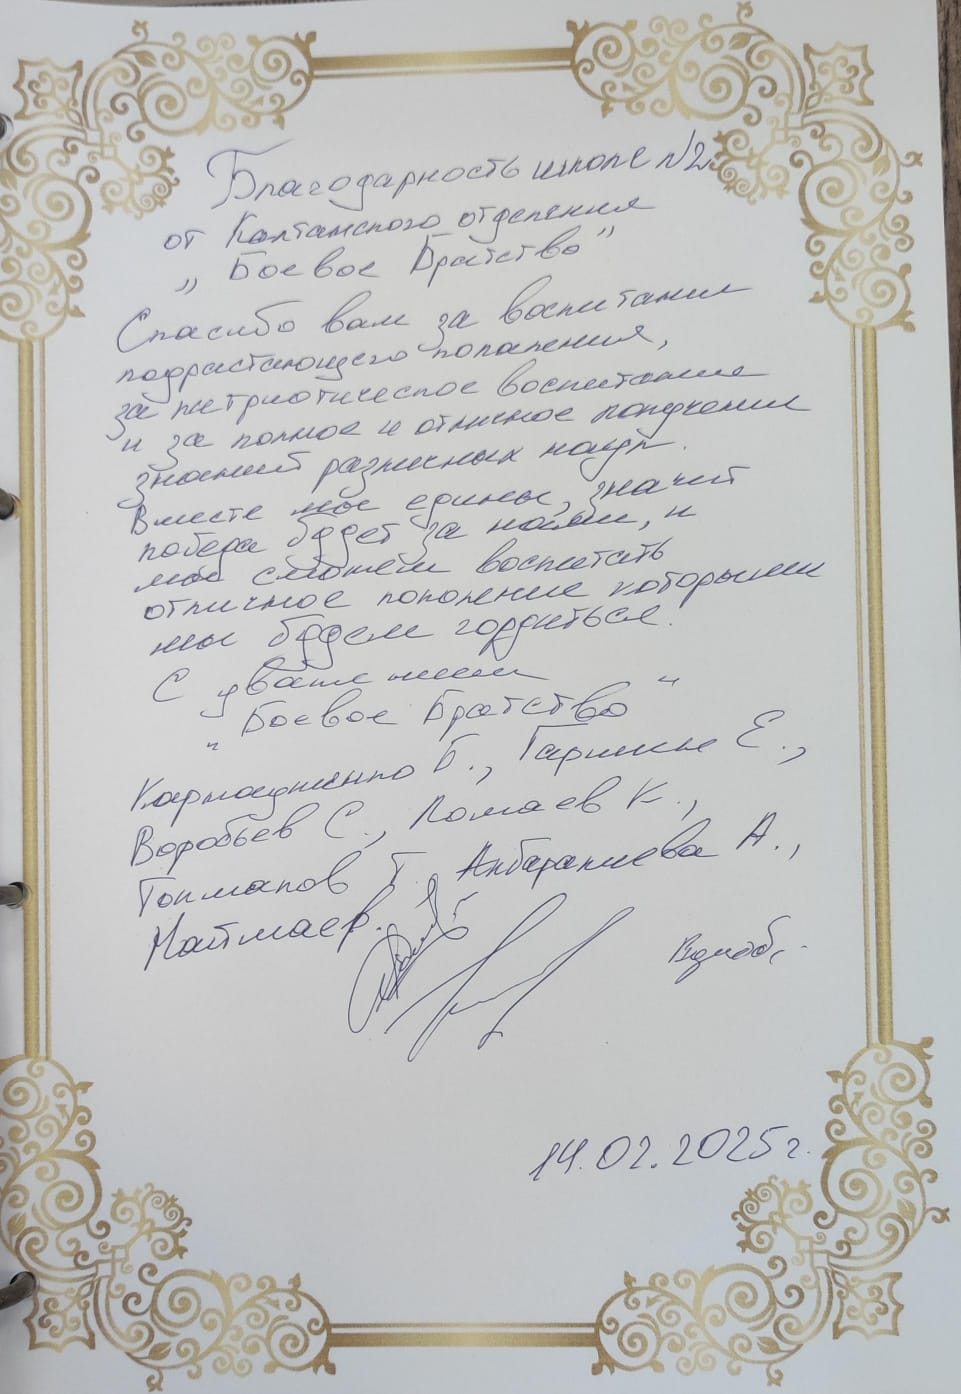 Благодарность школе №2
от Калтанского отделения
„Боевое Братство"
Спасибо вам за воспитании
подрастающего поколения,
за патриотическое воспитание
и за полное и отличное получении
знаний различных наук.
Вместе мы едины, значит
победа будет за нами, и
мы сможем воспитать
отличное поколение которыми
мы будем гордиться.
С уважением
"Боевое Братство"
Б., Е.,
Воробьев С., Ломаев К.,
Толмачов Т. А.,
14.02.2025г.